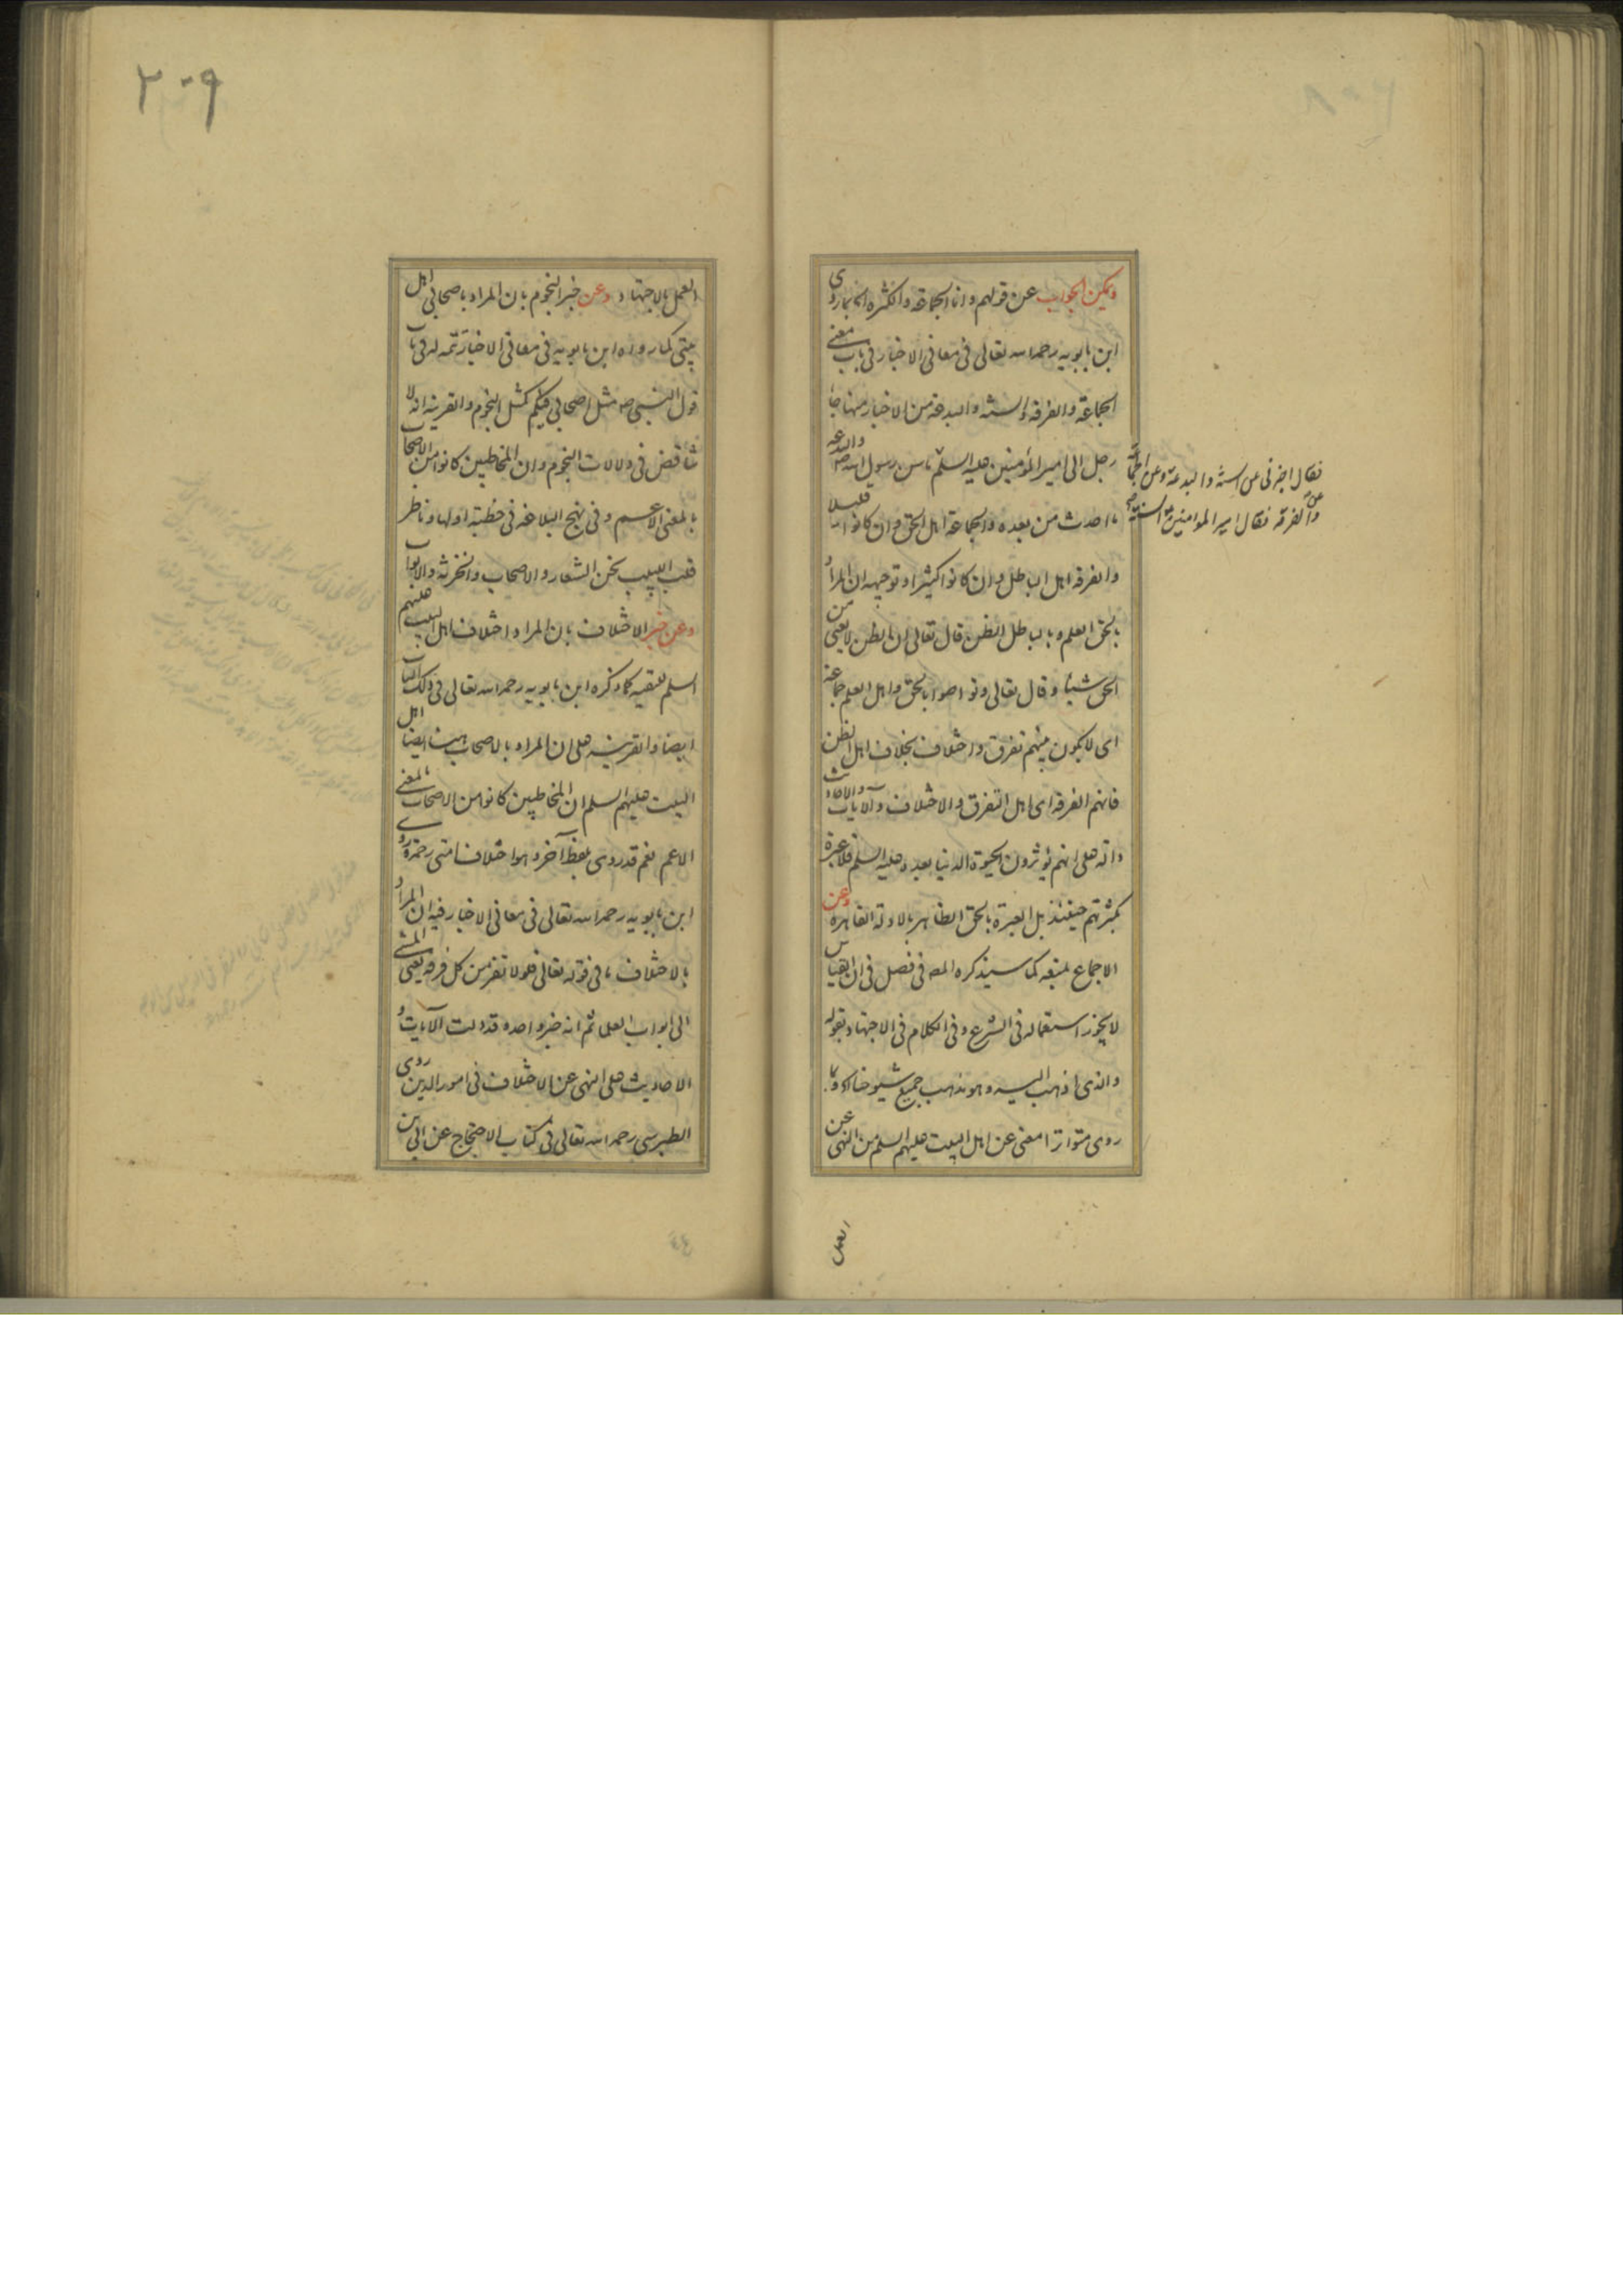 ويمكن الجواب عن قولهم وانا الجماعة والكثرة الخ بما روى
ابن بابويه رحمه الله تعالى فى معانى الاخبار فى باب معنى
الجماعة والفرقة والسنة والبدعة من الاخبار منها جاء
رجل الى امير المؤمنين عليه السلم ما سن رسول الله ص والبدعة
فقال اخبرنى عن السنة والبدعة وعن الجماعة
وعن الفرقة فقال امير المؤمنين ع السنة
ما احدث من بعده والجماعة اهل الحق وان كانوا قليلا
والفرقة اهل الباطل وان كانوا كثيرا وتوجيهه ان المراد
بالحق العلم وبالباطل الظن قال تعالى ان الظن لا يغنى من
الحق شيئا وقال تعالى وتواصوا بالحق واهل العلم جماعة
اى لا يكون بينهم تفرق واختلاف بخلاف اهل الظن
فانهم الفرقة اى اهل التفرق والاختلاف والآيات والاحاديث
دالة على انهم يؤثرون الحيوة الدنيا بعده عليه السلم فلا عبرة
بكثرتهم حينئذ بل العبرة بالحق الظاهر بالادلة القاهرة وعن
الاجماع بمنعه كما سيذكره المصه فى فصل فى ان القياس
لا يجوز استعماله فى الشرع وفى الكلام فى الاجتهاد بقوله
والذى اذهب اليه وهو مذهب جميع شيوخنا الخ وبما
روى متواترا معنى عن اهل البيت عليهم السلم من النهى عن
العمل
٣٠٩
العمل بالاجتهاد وعن خبر النجوم بان المراد باصحابى اهل
بيتى كما رواه ابن بابويه فى معانى الاخبار تتمه له فى باب
قول النبى ص مثل اصحابى فيكم كمثل النجوم والقرينة انه لا
تناقض فى دلالات النجوم وان المخاطبين كانوا من الاصحاب
بالمعنى الاعم وفى نهج البلاغة فى خطبة اولها وناظر
قلب اللبيب نحن الشعار والاصحاب والخزنة والابواب
وعن خبر الاختلاف بان المراد اختلاف اهل البيت عليهم
السلم للتقية كما ذكره ابن بابويه رحمه الله تعالى فى ذلك الباب
ايضا والقرينة على ان المراد بالاصحاب هنا ايضا اهل
البيت عليهم السلم ان المخاطبين كانوا من الاصحاب بالمعنى
الاعم نعم قد روى بلفظ آخر وهو اختلاف امتى رحمة روى
ابن بابويه رحمه الله تعالى فى معانى الاخبار فيه ان المراد
بالاختلاف ما فى قوله تعالى فلولا نفر من كل فرقة يعنى المشى
الى ابواب العلما ثم انه خبر واحد وقد دلت الآيات و
الاحاديث على النهى عن الاختلاف فى امور الدين روى
الطبرسى رحمه الله تعالى فى كتاب الاحتجاج عن